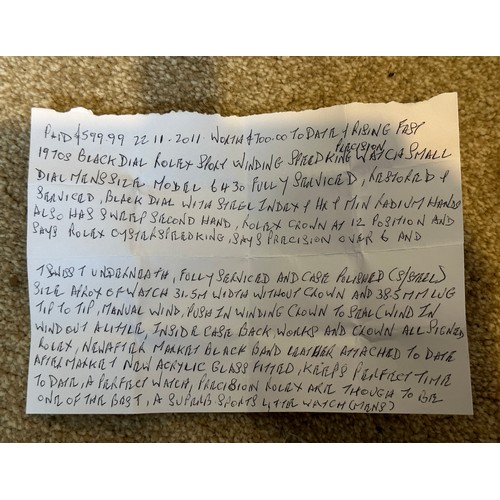 PAID $599.99 22-11-2011 WORTH $700.00 TO DATE & RISING FAST
PRECISION
1970S BLACK DIAL ROLEX SPORT WINDING SPEEDKING WATCH SMALL
DIAL MENS SIZE MODEL 6430 FULLY SERVICED, RESTORED &
SERVICED, BLACK DIAL WITH STEEL INDEX & HR & MIN RADIUM HANDS
ALSO HAS SWEEP SECOND HAND, ROLEX CROWN AT 12 POSITION AND
SAYS ROLEX OYSTER SPEEDKING, SAYS PRECISION OVER 6 AND
T SWISS T UNDERNEATH, FULLY SERVICED AND CASE POLISHED (S/STEEL)
SIZE APROX OF WATCH 31.5M WIDTH WITHOUT CROWN AND 38.5MM LUG
TIP TO TIP, MANUAL WIND, PUSH IN WINDING CROWN TO SEAL (WIND IN
WIND OUT A LITTLE INSIDE CASE BACK, WORKS AND CROWN ALL SIGNED
ROLEX, NEW AFTER MARKET BLACK BAND LEATHER ATTACHED TO DATE
AFTER MARKET NEW ACRYLIC GLASS FITTED, KEEPS PERFECT TIME
TO DATE, A PERFECT WATCH, PRECISION ROLEX ARE THOUGH TO BE
ONE OF THE BEST, A SUPERB SPORTS WATCH (MENS)